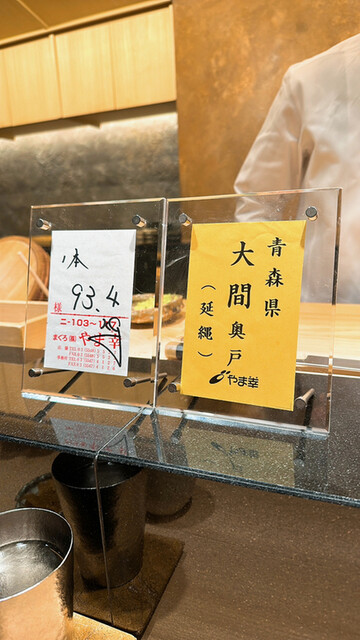 1本
93.4
様
ニ-103~
まぐろ(仲) やま幸
青森県
大間奥戸
(延縄)
やま幸